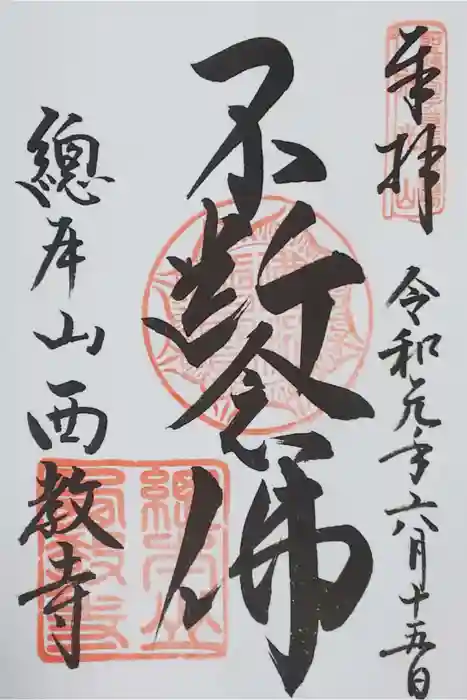 奉拝
令和元年六月十五日
不断念佛
總本山西教寺
總本山
西教寺